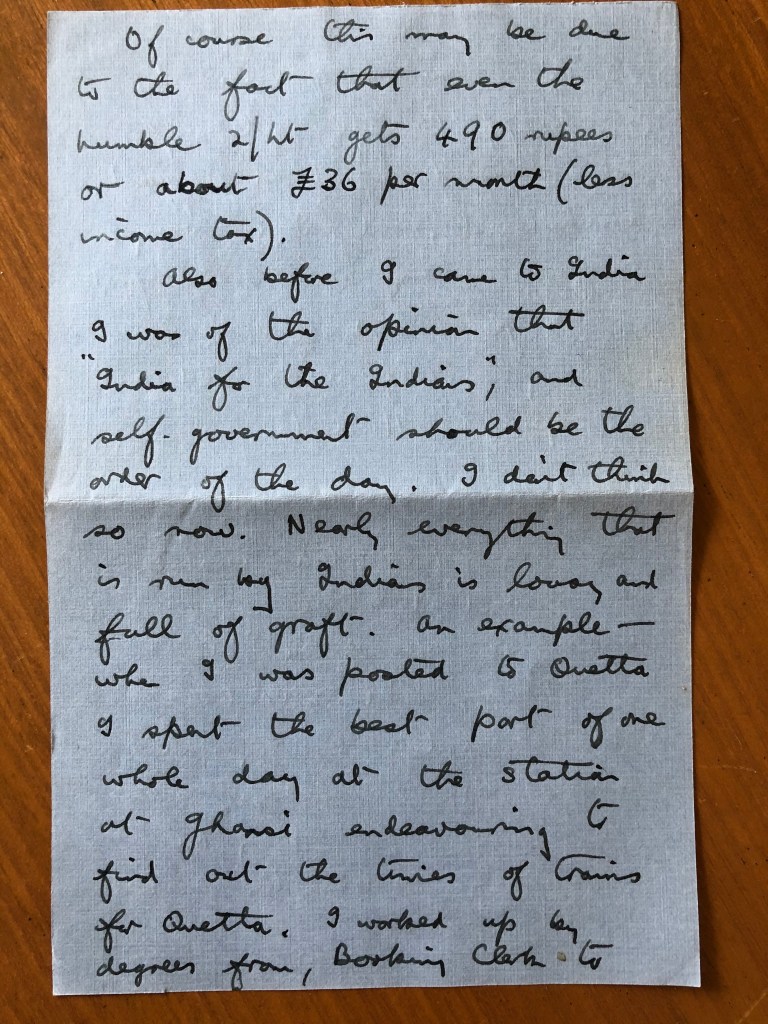 Of course this may be due
to the fact that even the
humble 2/Lt gets 490 rupees
or about £36 per month (less
income tax).
Also before I came to India
I was of the opinion that
"India for the Indians", and
self-government should be the
order of the day. I don't think
so now. Nearly everything that
is run by Indians is lousy and
full of graft. An example —
when I was posted to Quetta
I spent the best part of one
whole day at the station
at Jhansi endeavouring to
find out the times of trains
for Quetta. I worked up by
degrees from, Booking Clerk to